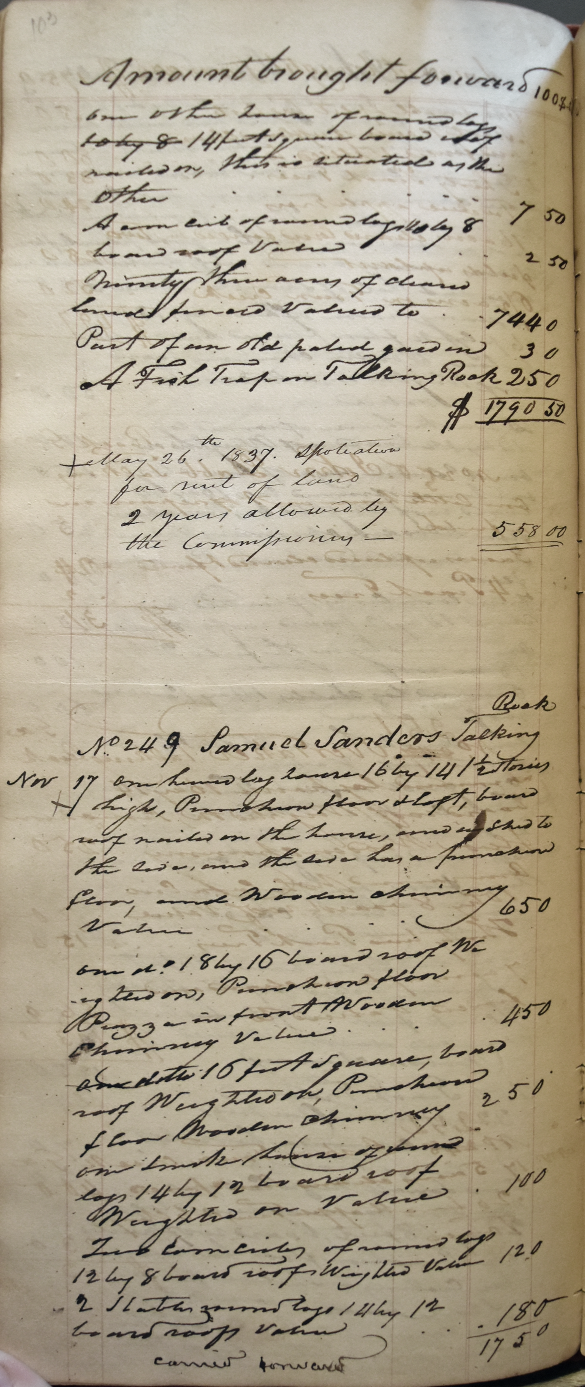 103
Amount brought forward 1004
one other house of round logs
10 by 8 14 feet square board roof
nailed on, this is situated as the
other 7 50
A corn crib of round logs 10 by 8
board roof Value 2 50
Ninety three acres of cleared
land fenced Valued to 744 0
Part of an old paled garden 3 0
A Fish Trap on Talking Rock 25 0
$ 1790 50
May 26th 1837. Spoliation
for rent of land
2 years allowed by
the Commissioners — 558 00
Rock
No 249 Samuel Sanders Talking
Nov 17 one hewed log house 16 by 14 1½ stories
high, Puncheon floor & loft, board
roof nailed on the house, and a shed to
the side, and the side has a puncheon
floor, and Wooden chimney
Value 65 0
one do. 18 by 16 board roof We
ighted on, Puncheon floor
Piazza in front Wooden
Chimney Value 45 0
one ditto 16 feet square, board
roof Weighted on, Puncheon
floor Wooden chimney 25 0
one smoke house of round
logs 14 by 12 board roof
Weighted on Value 10 0
Two corn cribs of round logs
12 by 8 board roofs Weighted Value 12 0
2 Stables round logs 14 by 12
board roofs Value 18 0
175 0
carried forward